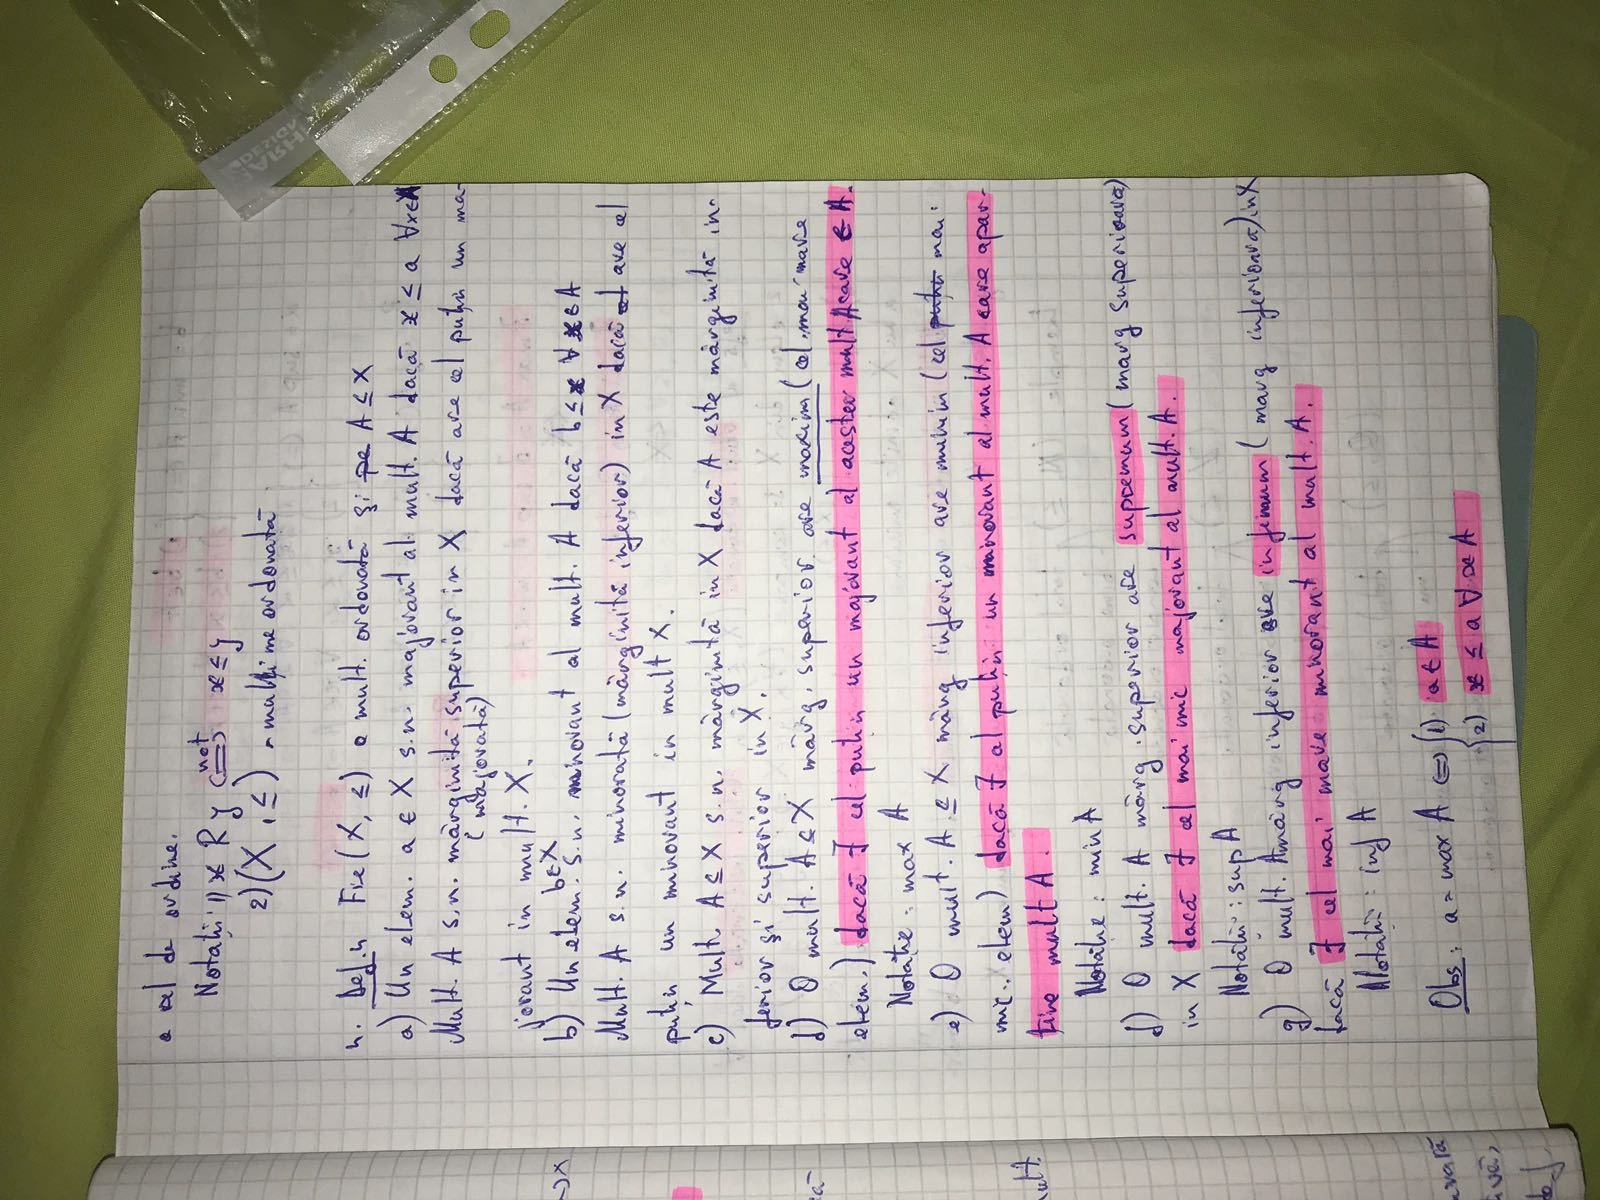 o rel de ordine.
Notații 1) x R y (not⟺) x ≤ y
2) (X, ≤) - mulțime ordonată
4. Defn Fie (X, ≤) o mult. ordonată și A ⊆ X
a) Un elem. a ∈ X s.n. majorant al mult. A dacă x ≤ a ∀x∈A
Mult. A s.n. mărginită superior în X dacă are cel puțin un ma-
(majorată)
jorant în mult. X.
b) Un elem. b∈X s.n. minorant al mult. A dacă b ≤ x ∀ x∈A
Mult. A s.n. minorată (mărginită inferior) în X dacă are cel
puțin un minorant în mult X.
c) Mult. A ⊆ X s.n. mărginită în X dacă A este mărginită in-
ferior și superior în X.
d) O mult. A ⊆ X mărg. superior are maxim (cel mai mare
elem.) dacă ∃ cel puțin un majorant al acestei mult A care ∈ A.
Notație: max A
e) O mult. A ⊆ X mărg inferior are minim (cel mai
mic elem) dacă ∃ cel puțin un minorant al mult. A care apar-
tine mult A.
Notație: min A
f) O mult. A mărg. superior are supremum (marg superioară)
în X dacă ∃ cel mai mic majorant al mult. A.
Notații: sup A
g) O mult. A mărg inferior are infimum (marg inferioară) în X
dacă ∃ cel mai mare minorant al mult. A.
Notații: inf A
Obs: a = max A ⟺ { 1) a ∈ A
2) x ≤ a ∀ x∈A
ARHI
DESIGN
)X
mult.